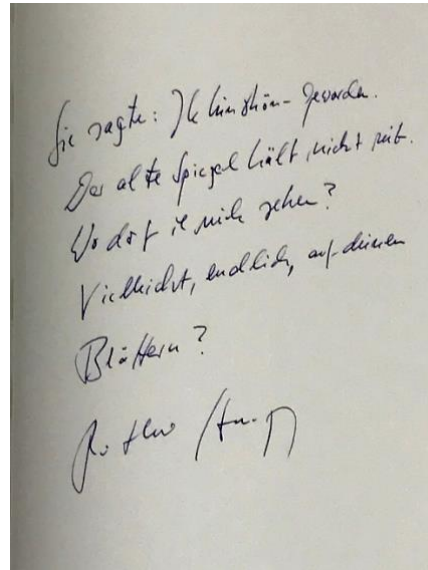 Sie sagte: Ich bin schön geworden.
Der alte Spiegel hält nicht mit.
Wo darf ich mich sehen?
Vielleicht, endlich, auf deinen
Blättern?